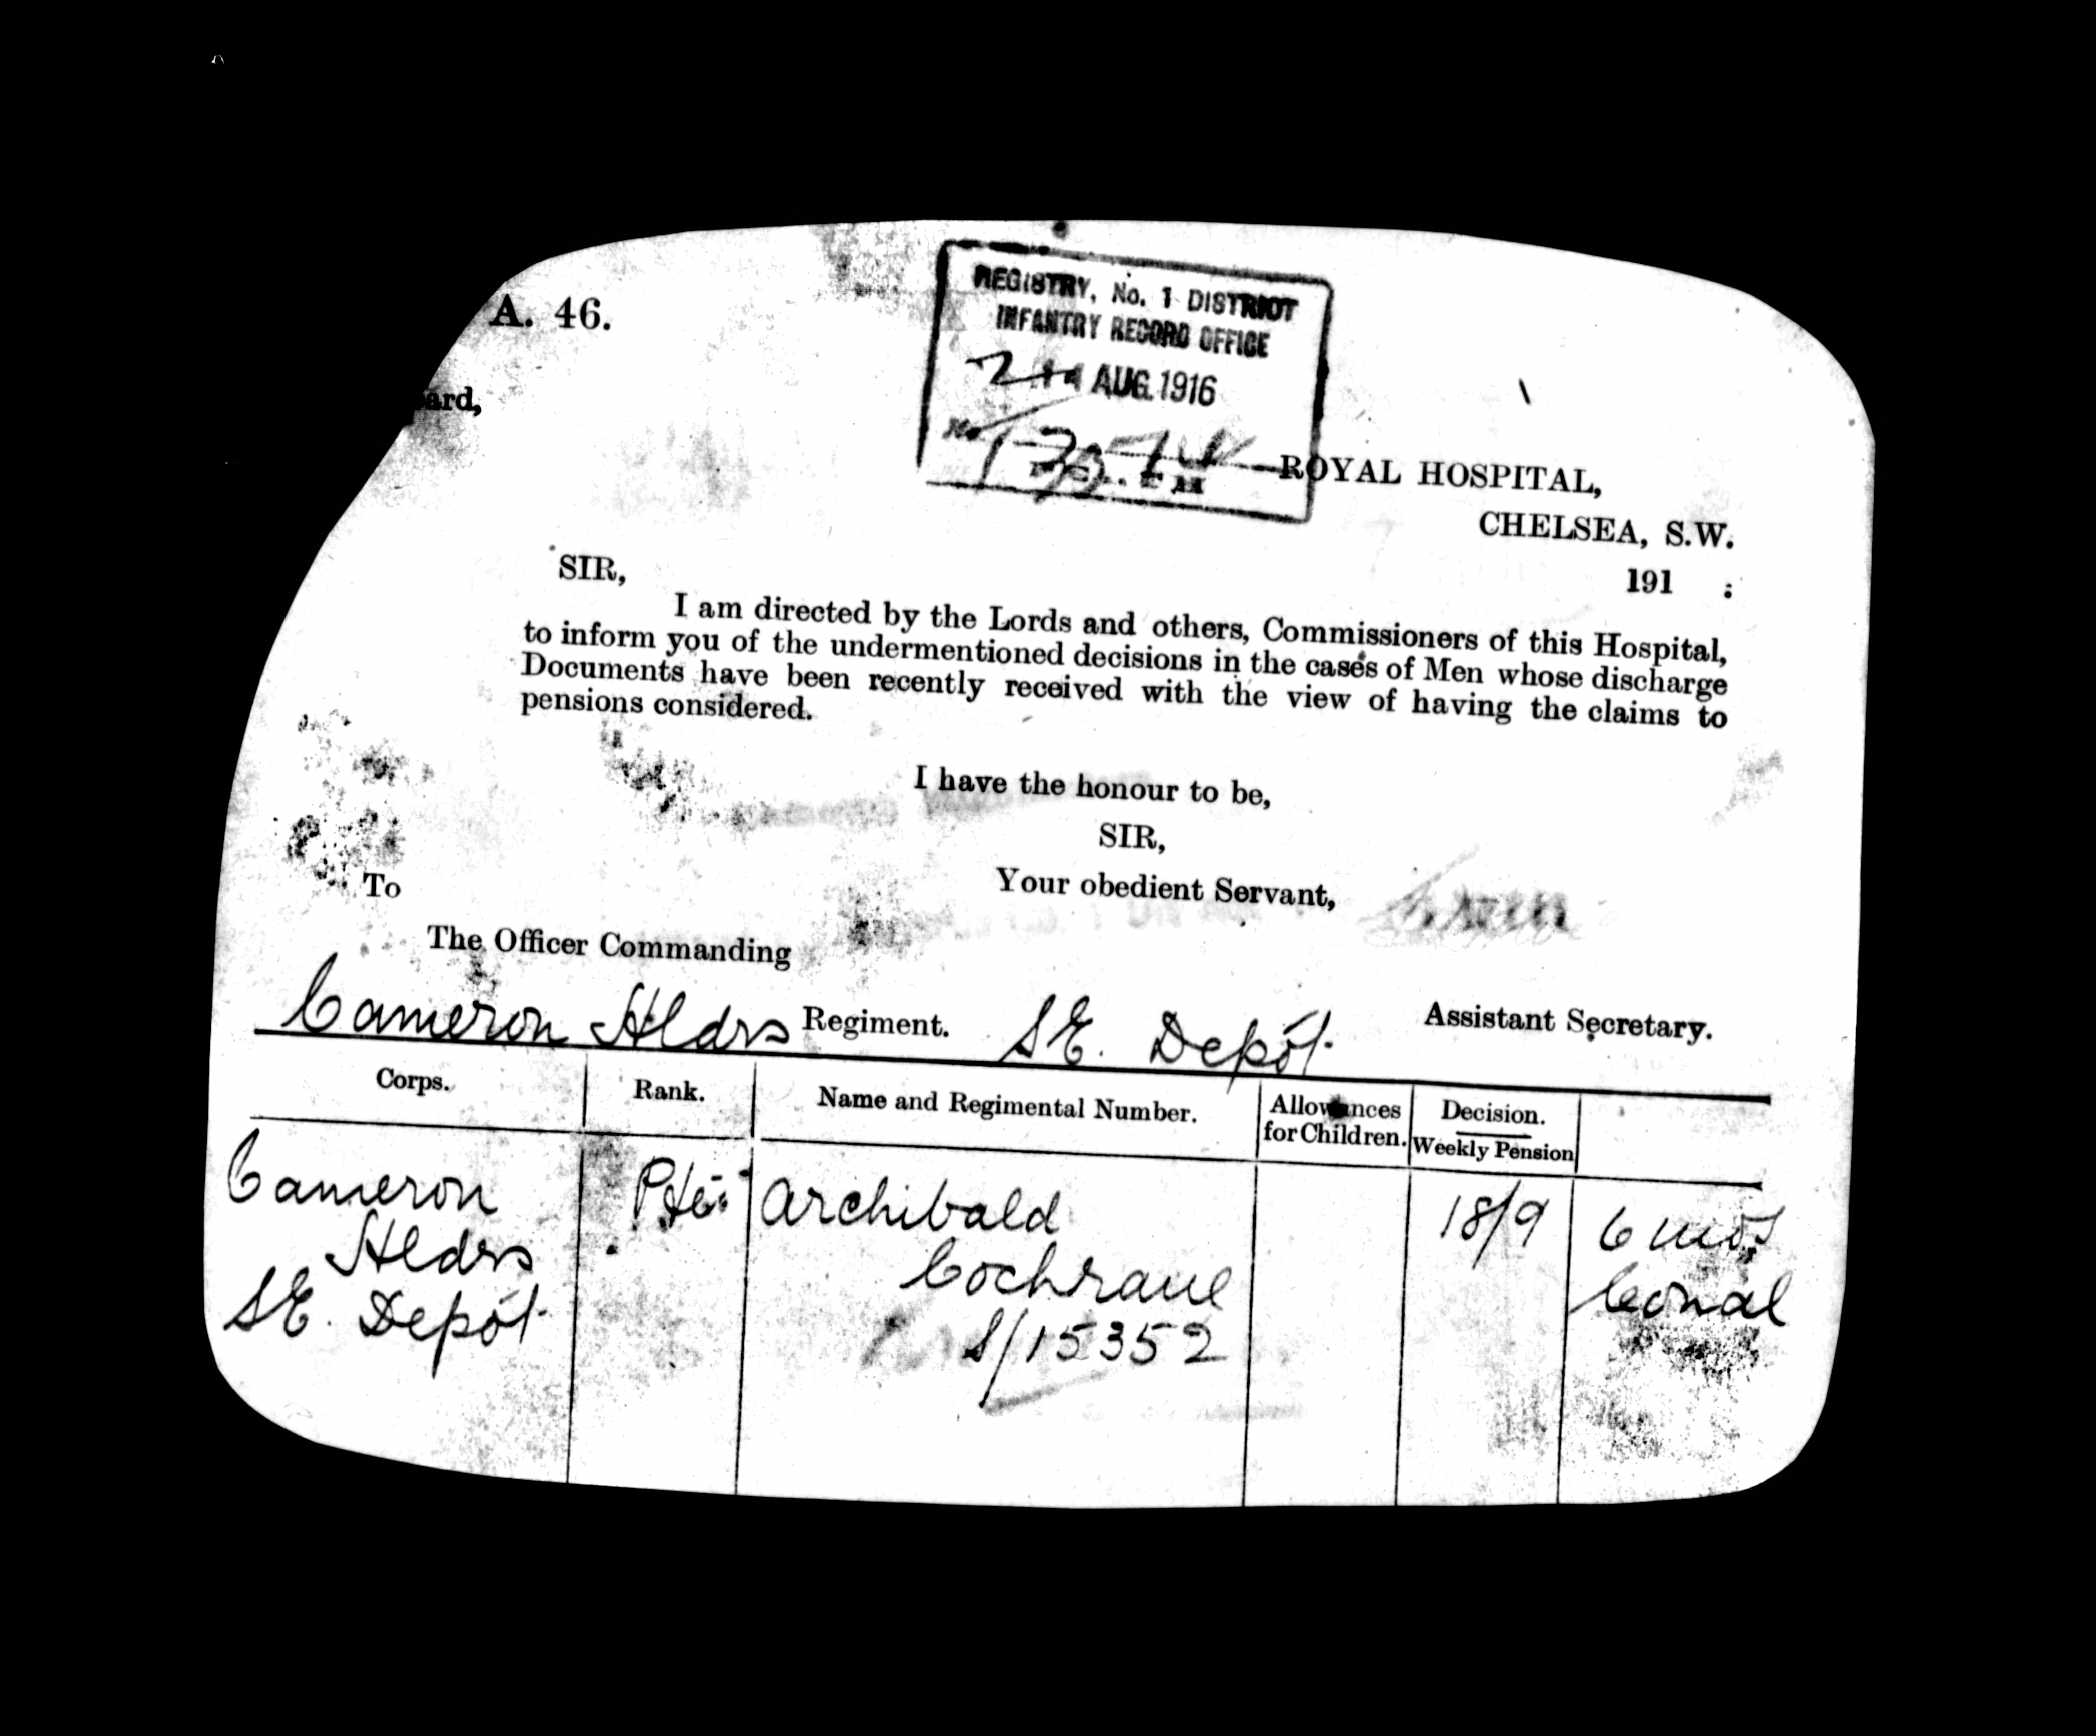 A. 46.
REGISTRY, No. 1 DISTRICT
INFANTRY RECORD OFFICE
AUG. 1916
No.
ard,
ROYAL HOSPITAL,
CHELSEA, S.W.
191 :
SIR,
I am directed by the Lords and others, Commissioners of this Hospital,
to inform you of the undermentioned decisions in the cases of Men whose discharge
Documents have been recently received with the view of having the claims to
pensions considered.
I have the honour to be,
SIR,
Your obedient Servant,
To
The Officer Commanding
Cameron Hldrs Regiment. SE. Depôt.
Assistant Secretary.
Corps. Rank. Name and Regimental Number. Allowances for Children. Decision. Weekly Pension
Cameron Pte. Archibald 18/9 6 mos
Hldrs Cochrane Conal
SE. Depôt. S/15352